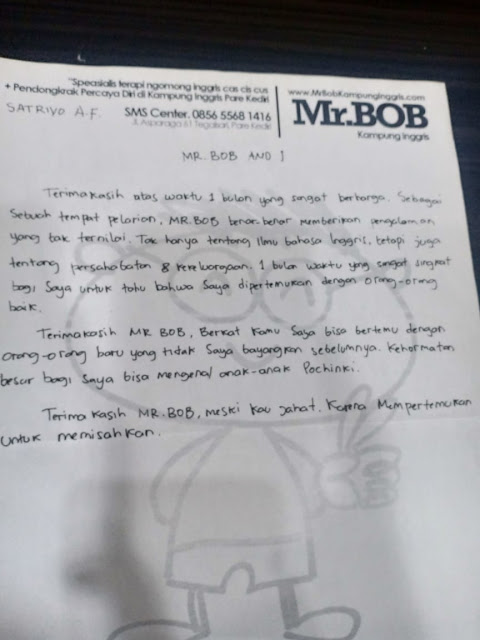 "Speasialis terapi ngomong inggris cas cis cus
+ Pendongkrak Percaya Diri di Kampung Inggris Pare Kediri
SATRIYO A.F.
SMS Center. 0856 5568 1416
Jl. Asparaga 61 Tegalsari, Pare Kediri
www.MrBobKampungInggris.com
Mr.BOB
Kampung Inggris
MR. BOB AND I
Terimakasih atas waktu 1 bulan yang sangat berharga. Sebagai
sebuah tempat pelarian, MR.BOB benar-benar memberikan pengalaman
yang tak ternilai. Tak hanya tentang Ilmu bahasa Inggris, tetapi juga
tentang persahabatan & kekeluargaan. 1 bulan waktu yang sangat singkat
bagi Saya untuk tahu bahwa Saya dipertemukan dengan orang-orang
baik.
Terimakasih MR BOB, Berkat Kamu Saya bisa bertemu dengan
orang-orang baru yang tidak Saya bayangkan sebelumnya. Kehormatan
besar bagi Saya bisa mengenal anak-anak Pochinki.
Terima Kasih MR.BOB, meski kau Jahat. Karena Mempertemukan
untuk memisahkan.